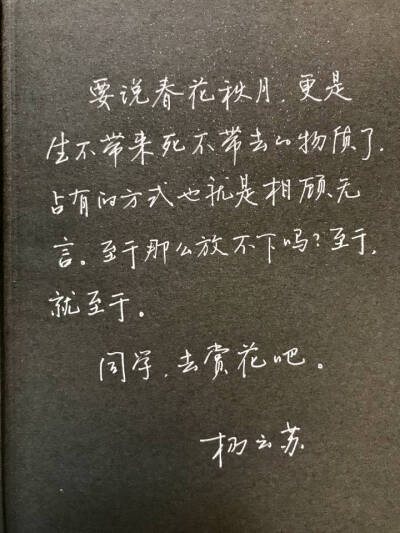 要说春花秋月,更是
生不带来死不带去的物质了.
占有的方式也就是相顾无
言。至于那么放不下吗?至于,
就至于。
同学,去赏花吧。
杨云苏